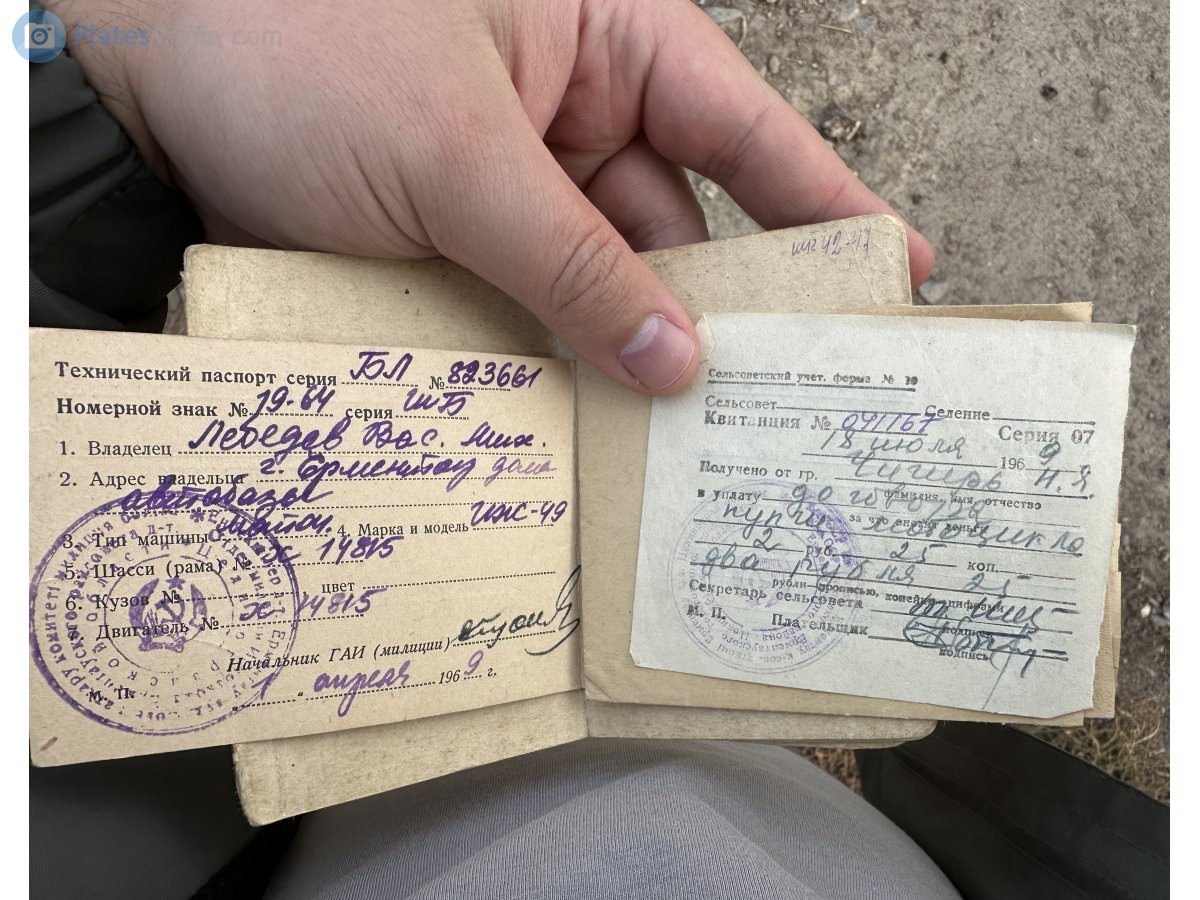 Platesmania.com
шт 42-47
Технический паспорт серия БЛ № 823661
Номерной знак № 19-64 серия ШБ
1. Владелец Лебедев Вас. Мих.
2. Адрес владельца г. Ерментау дома
автобазы
3. Тип машины 4. Марка и модель ИЖ-49
5. Шасси (рама) № Х 14815
6. Кузов № цвет
Двигатель № Х 14815
Начальник ГАИ (милиции)
М. П. 1 " апреля 1969 г.
Сельсоветский учет. форма № 10
Сельсовет Селение
Квитанция № 041167 Серия 07
18 июля 1969
Получено от гр. Чигирь Н. Я.
фамилия, имя, отчество
в уплату договора
за что внесены деньги
купли мотоцикла
2 руб. 25 коп.
два рубля 25
рубли—прописью, копейки—цифрами
Секретарь сельсовета
подпись
М. П. Плательщик
подпись